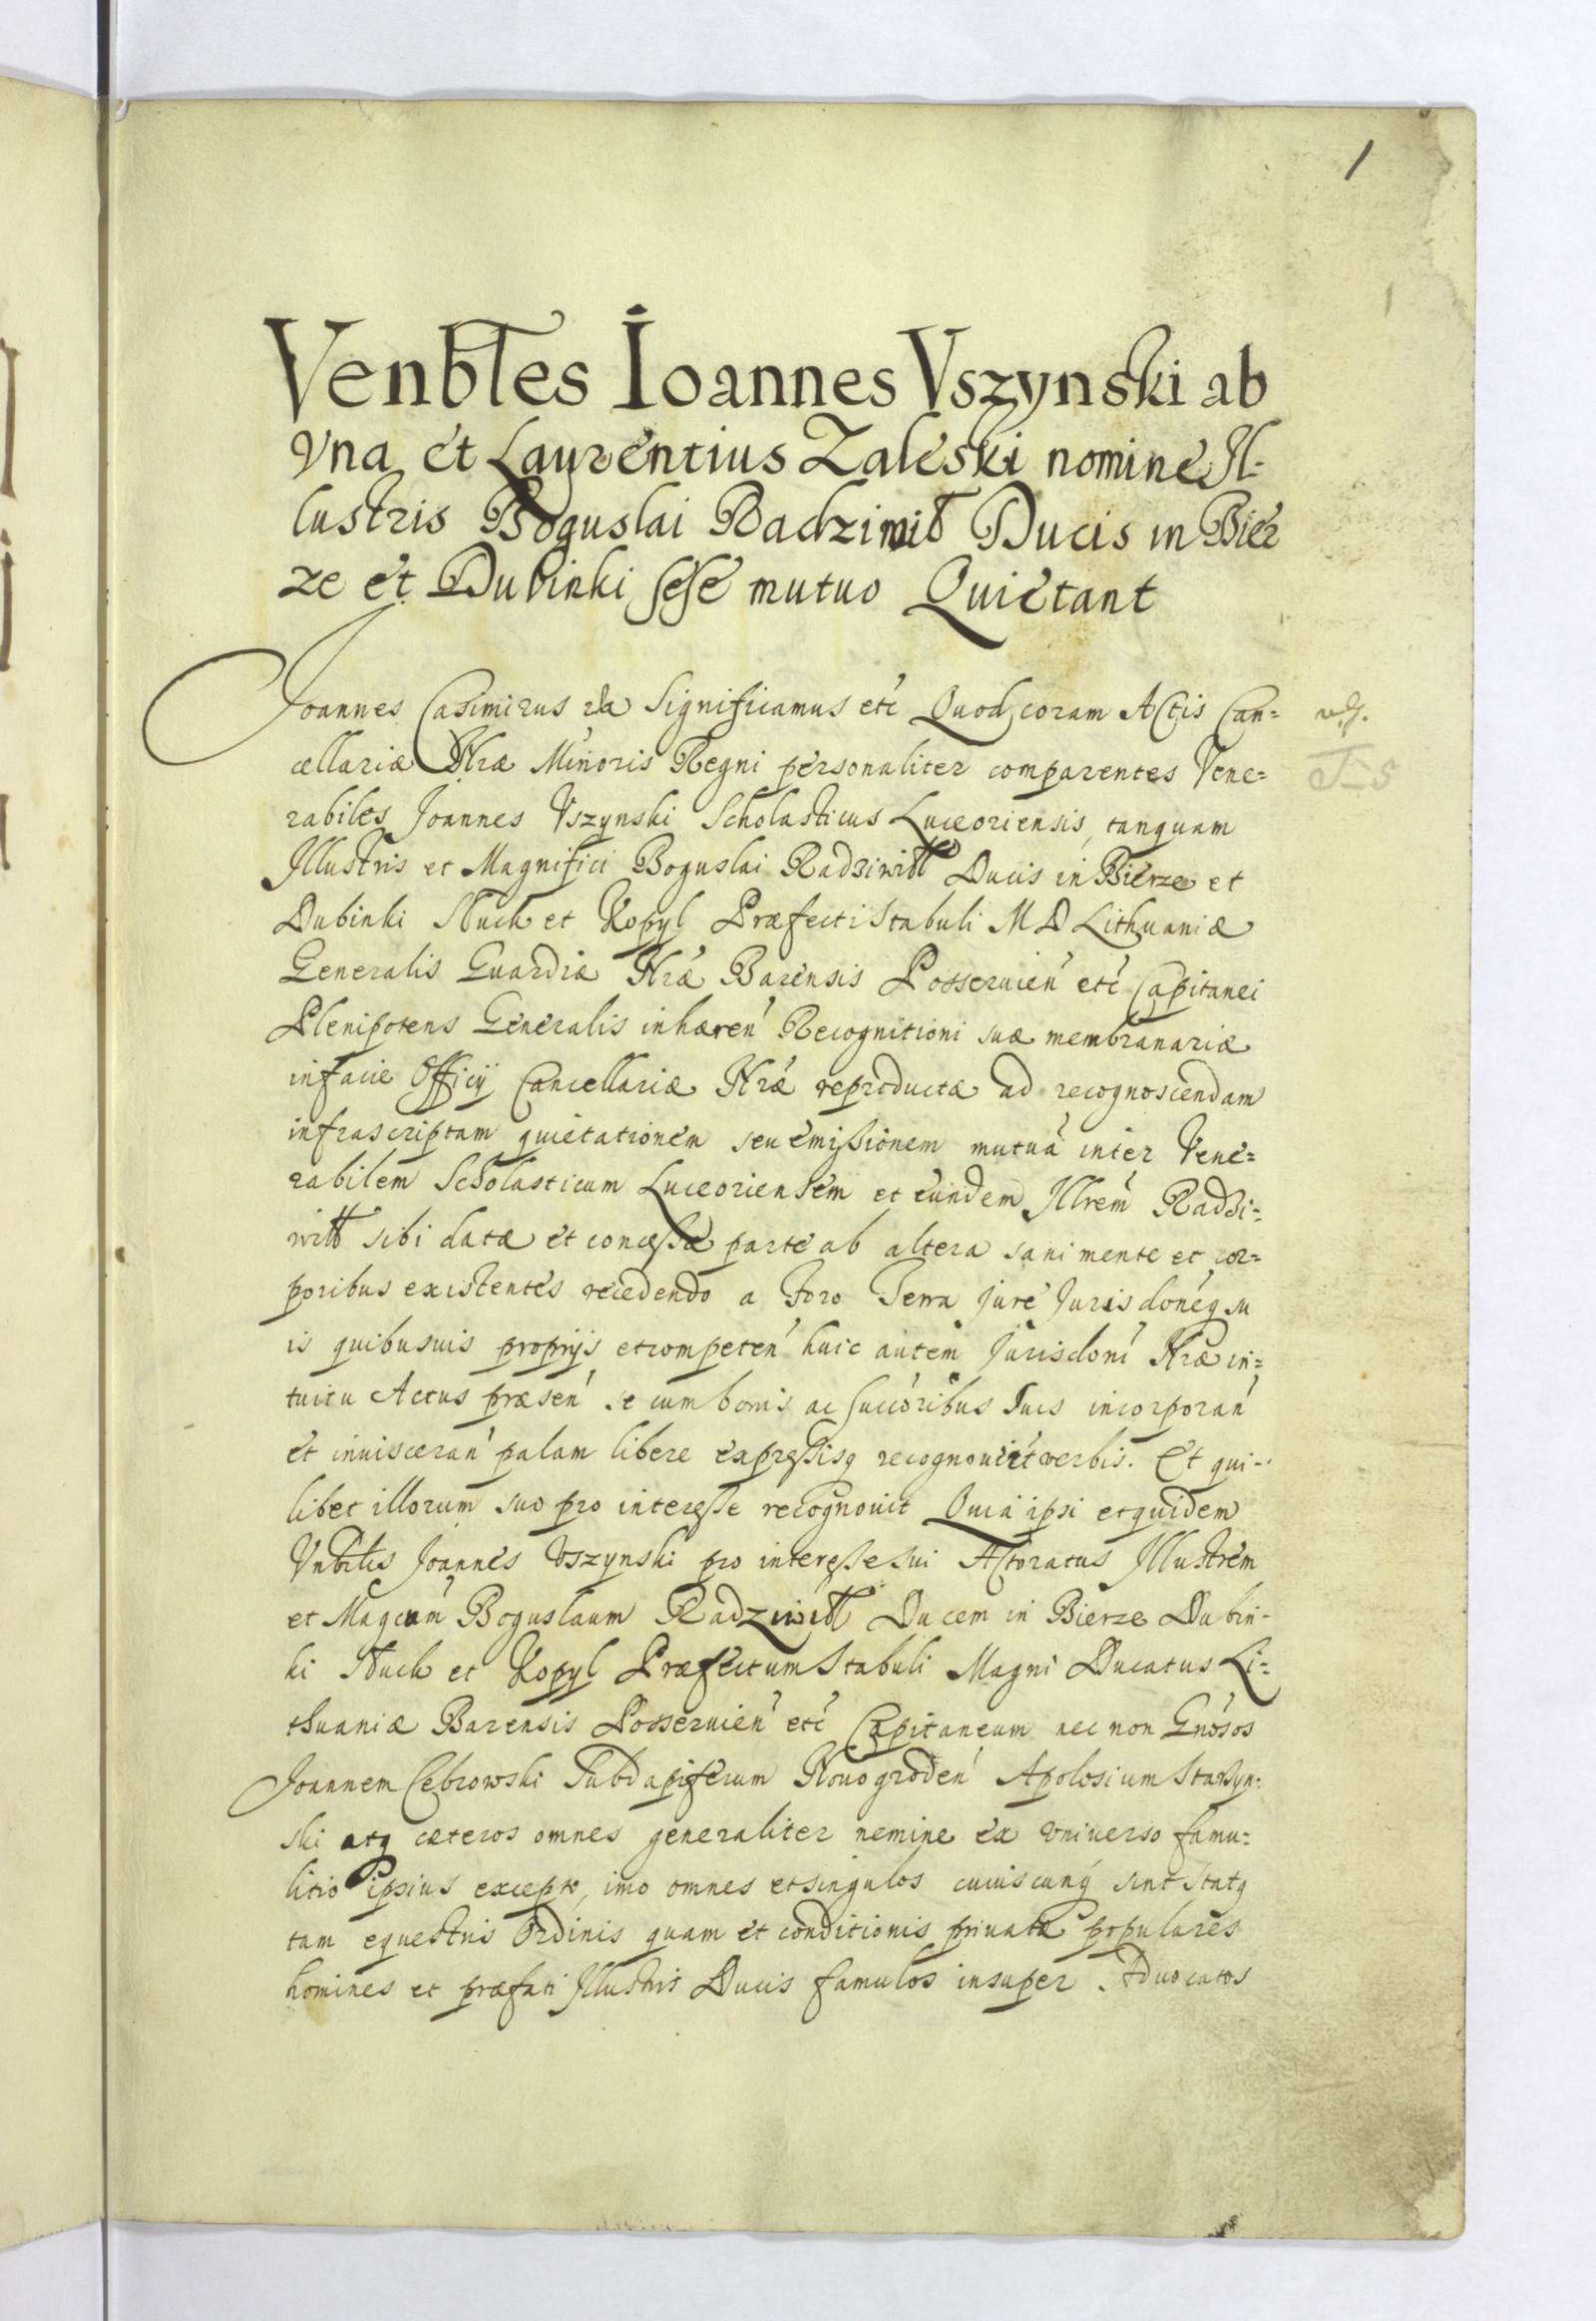 1
Venbles Ioannes Vszynski ab
vna et Laurentius Zaleski nomine Il-
lustris Boguslai Radziwił Ducis in Bier
ze et Dubinki sese mutuo Quietant
Joannes Casimirus etc Significamus etc Quod coram Actis Can=
cellariæ Nræ Minoris Regni personaliter comparentes Vene=
rabiles Joannes Vszynski Scholasticus Luceoriensis, tanquam
Illustris et Magnifici Boguslai Radziwiłł Ducis in Bierze et
Dubinki Słuck et Kopyl Præfecti Stabuli M D Lithuaniæ
Generalis Guardiæ Nræ Barensis Posseruien etc Capitanei
Plenipotens Generalis inhæren Recognitioni suæ membranariæ
in facie Officij Cancellariæ Nræ reproductæ ad recognoscendam
infrascriptam quietationem seu emissionem mutuā inter Vene=
rabilem Scholasticum Luceoriensem et eundem Illrem Radzi=
wiłł sibi datæ et concessæ parte ab altera sani mente et cor=
poribus existentes recedendo a Foro Terra Jure Jurisdoneq su
is quibusuis proprijs et competen huic autem Jurisdoni Nræ in=
tuitu Actus præsen se cum bonis ac succoribus suis incorporan
et inuisceran palam libere expressisq recognouerūt verbis. Et qui-
libet illorum suo pro interesse recognouit Quia ipsi et quidem
Vnbilis Joannes Vszynski pro interesse sui Actoratus Illustrem
et Magcum Boguslaum Radziwiłł Ducem in Bierze Dubin-
ki Słuck et Kopyl Præfectum Stabuli Magni Ducatus Li=
thuaniæ Barensis Posseruien etc Capitaneum nec non Gnosos
Joannem Cebrowski Subdapiferum Nouogroden Apolosium Starzyn=
ski atq cæteros omnes generaliter nemine ex vniuerso famu=
litio ipsius excepto, imo omnes et singulos cuiuscunq sint statq
tam equestris Ordinis quam et conditionis priuatæ populares
homines et præfati Illustris Ducis famulos insuper Aduocatos